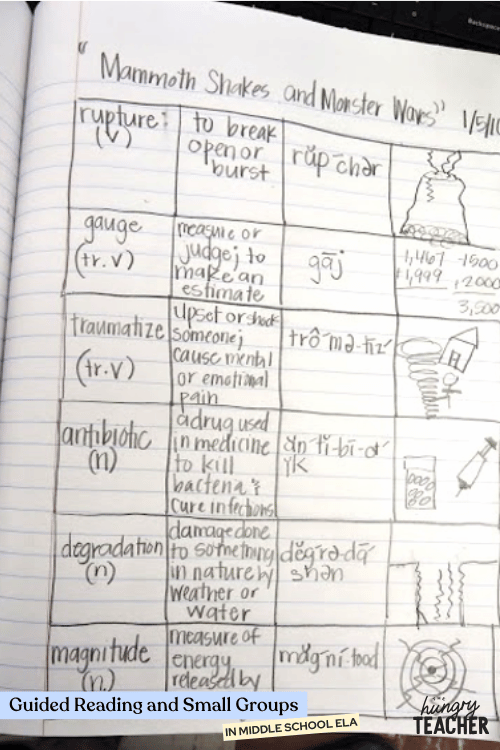 Backspace
"Mammoth Shakes and Monster Waves" 1/5/1
rupture:
(v)
to break
open or
burst
rŭp-chər
gauge
(tr.v)
measure or
judge; to
make an
estimate
gāj
1,467 -1500
+1,999 +2000
3,500
traumatize
(tr.v)
upset or shock
someone;
cause mental
or emotional
pain
trô-mə-tīz'
antibiotic
(n)
a drug used
in medicine
to kill
bacteria &
cure infections
ăn-tĭ-bī-ŏt'
ĭk
degradation
(n)
damage done
to something
in nature by
weather or
water
dĕgrə-dā'
shən
magnitude
(n.)
measure of
energy
released by
măg-nĭ-tood
Guided Reading and Small Groups
IN MIDDLE SCHOOL ELA
hungry
TEACHER